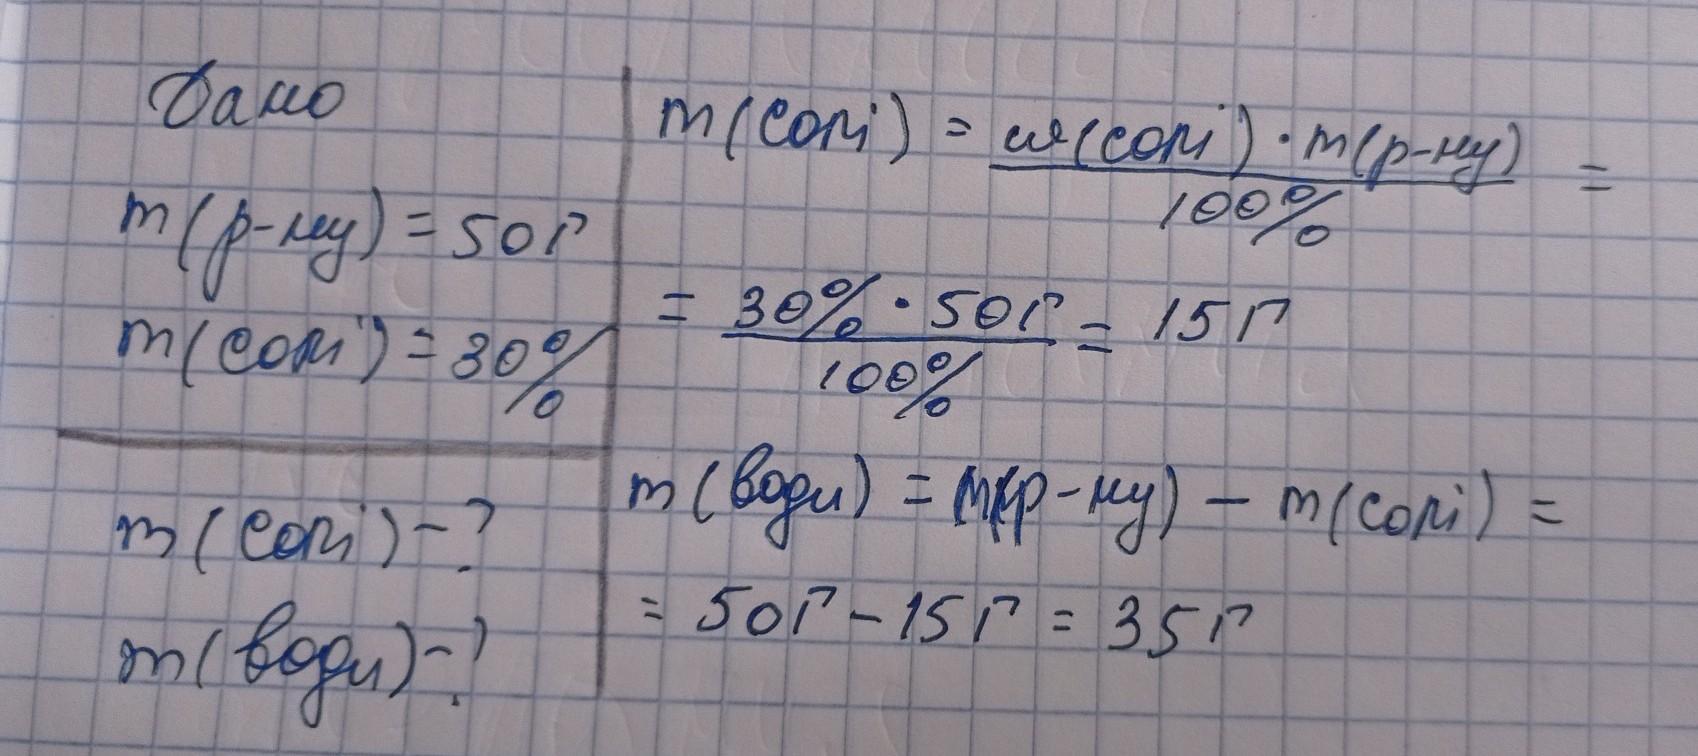 Дано
m(р-ну) = 50г
m(солі) = 30%
m(солі) - ?
m(води) - ?
m(солі) = ω(солі) · m(р-ну) / 100% =
= 30% · 50г / 100% = 15г
m(води) = m(р-ну) - m(солі) =
= 50г - 15г = 35г